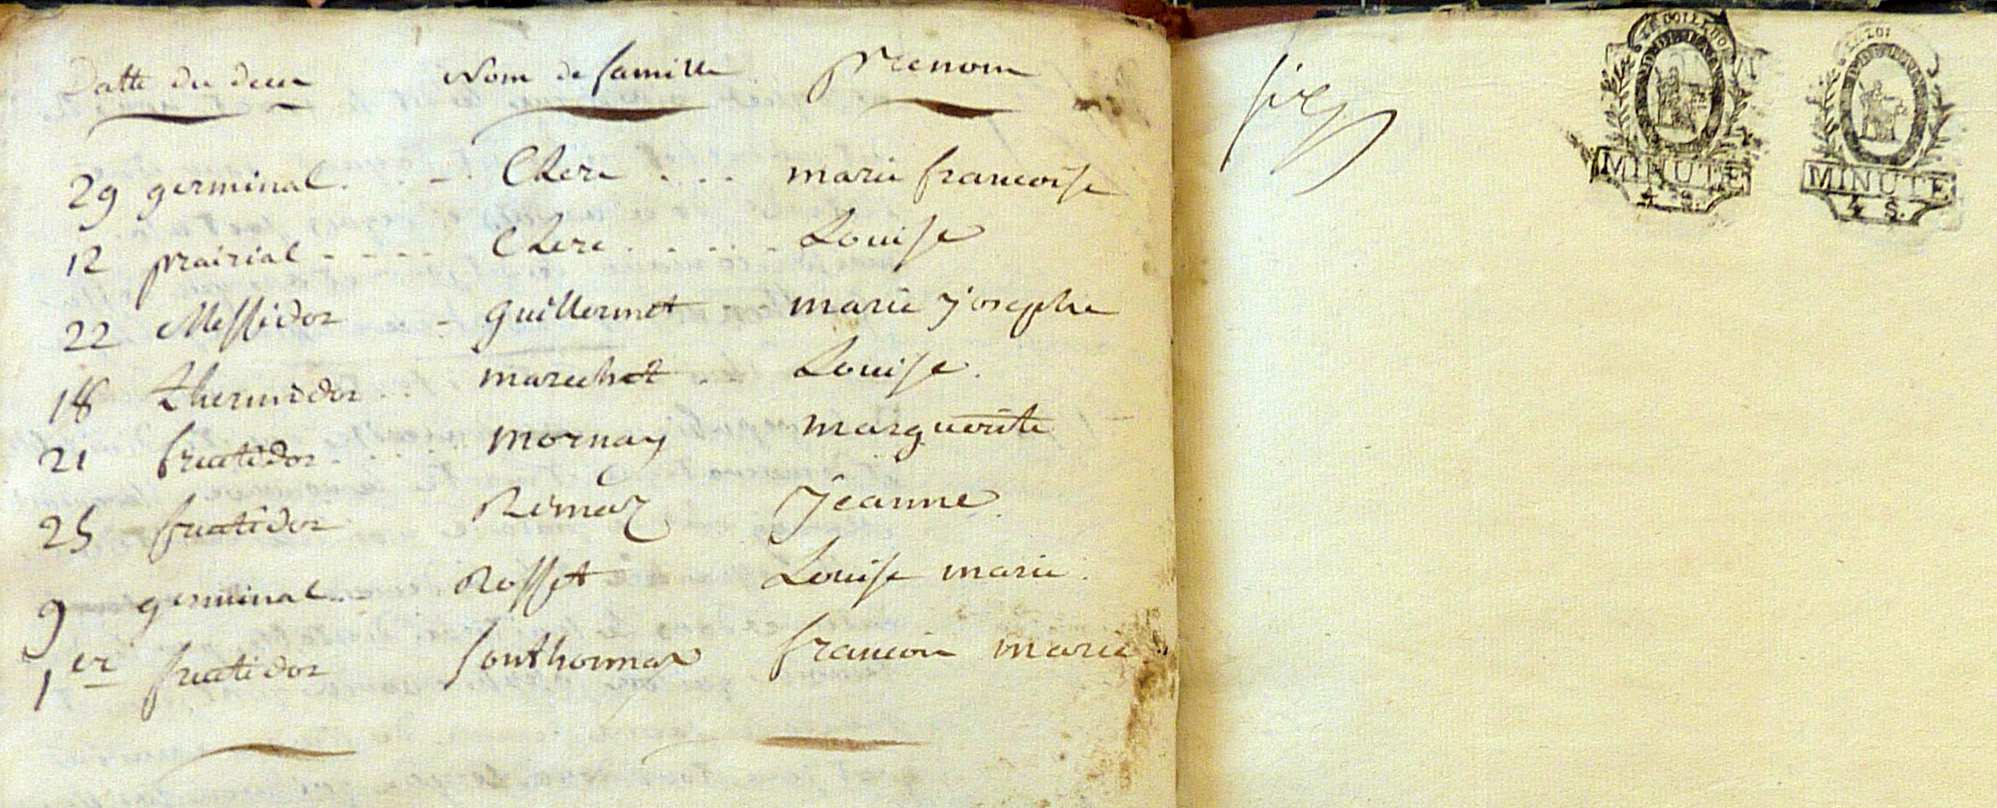 Datte du deces Nom de famille prenom
29 germinal Chere marie francoise
12 prairial Chere Louise
22 Messidor guillermet marie josephe
18 thermidor marechet Louise
21 fructidor mornay marguerite
25 fructidor Remaz jeanne
9 germinal Rosset Louise marie
1er fructidor Southonnax francois marie
MINUTE
4 S.
MINUTE
4 S.